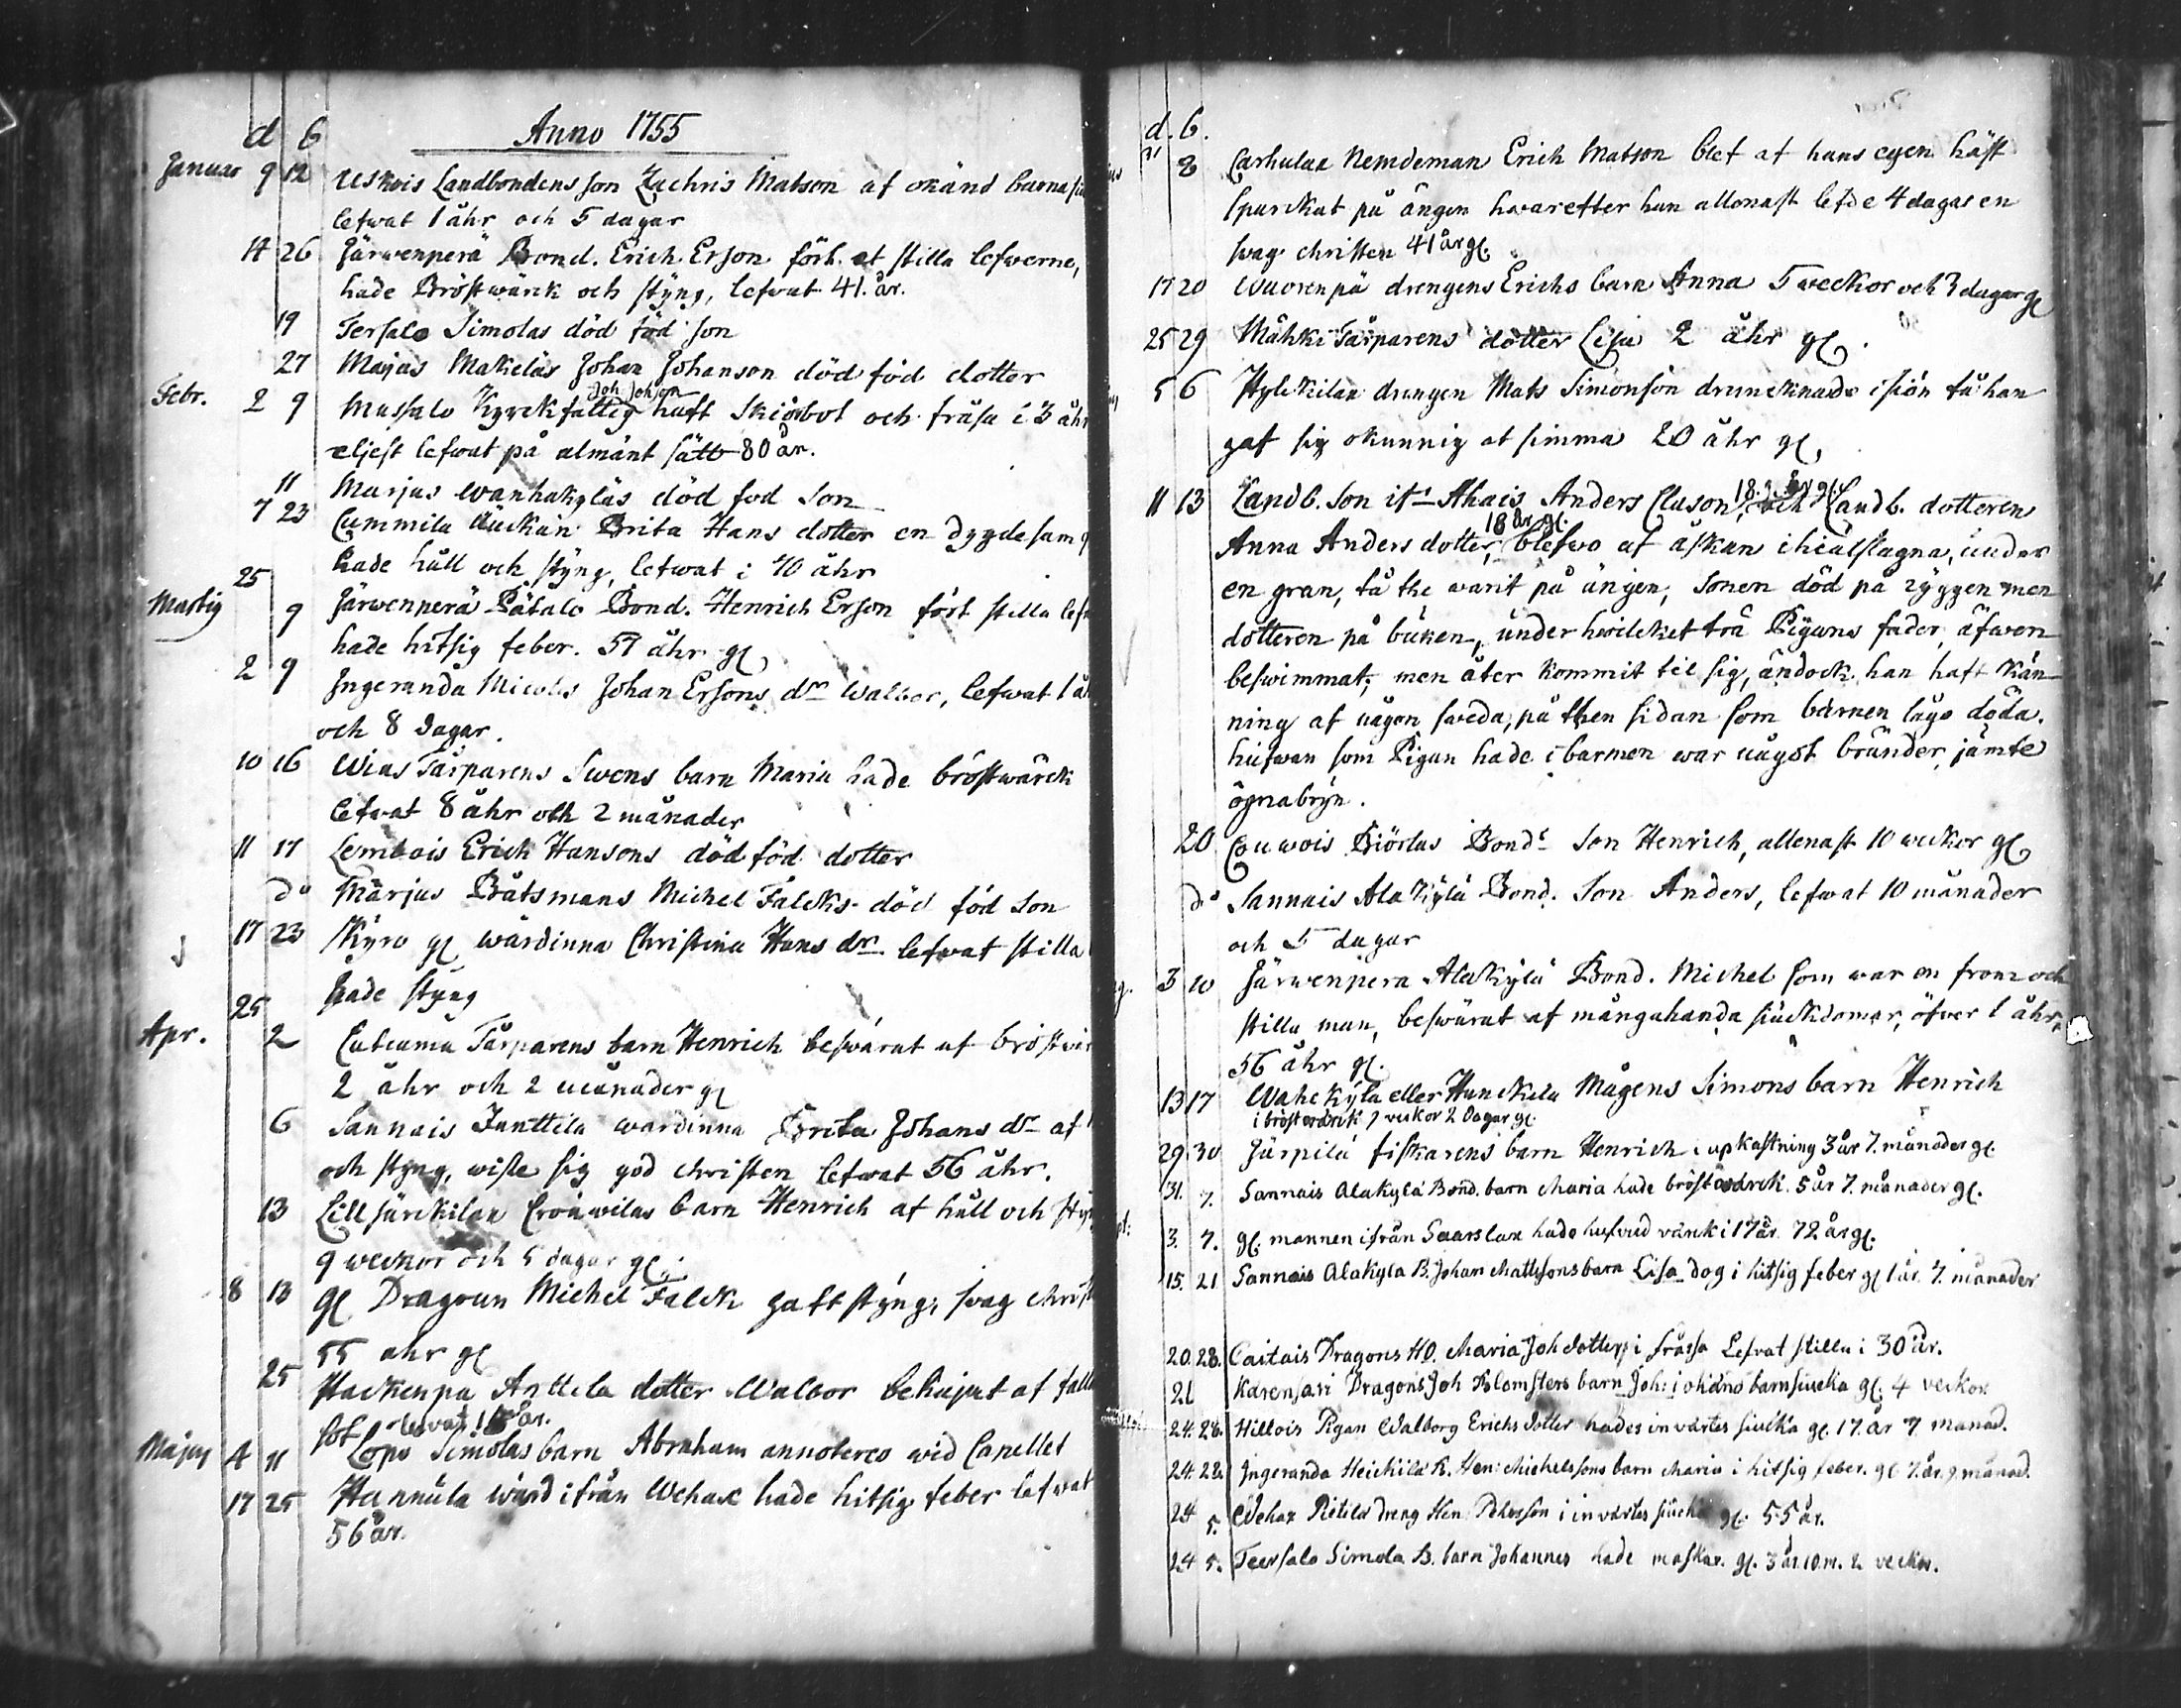 d b Anno 1755
Januar 9 12 Uskois Landbondens son Zachris Matson af okänd barna
lefwat 1 åhr och 5 dagar
14 26 Järwenperä Bond. Erich Erson förh. et stilla lefwerne,
hade Bröstwärck och styng, lefwat 41. år.
19 Tersalo Simolas död föd son
27 Marjas Makeläs Johan Johanson död föd dotter
Joh: Johson
Febr. 2 9 Mussalo Kyrckfattig haft skiörbot och fråsa i 3 åhr
eljest lefwat på almänt sätt 80 år.
11 Marjas Wanhakyläs död föd Son
7 23 Cummila Enckan Brita Hans dotter en dygdesam
hade håll och styng, lefwat i 70 åhr
25
Martij 9 Järwenperä Pätalo Bond. Henrich Erson fört stilla
hade hitsig feber. 57 åhr gl
2 9 Ingeranda Micolas Johan Ersons dr Walbor, lefwat 1
och 8 dagar.
10 16 Wias Tårparens Swens barn Maria hade bröstwärck
lefwat 8 åhr och 2 månader
11 17 Lembois Erich Hansons död föd dotter
do Märjas Båtsmans Michel Falcks död föd son
17 23 Kyro gl wärdinna Christina Hans dr lefwat stilla
hade styng
25
Apr. 2 Tårparens barn Henrich beswärat af
2 åhr och 2 månader gl
6 Sannais Junttila wärdinna Brita Johans dr af
och styng, wiste sig god christen lefwat 56 åhr.
13 Lillsärckilax barn Henrich af håll och
9 weckor och 5 dagar gl.
8 13 gl Dragoun Michel Falck haft styng, swag
55 åhr gl
25 Hackenpä Anttila dotter Walbor behäjat af
sot
Majus 4 11 Lopo Simolas barn Abraham annoterco wid Capellet
17 25 Hannula wärd ifrån Wehax hade hitsig feber lefwat
56 år.
d. b.
8 Carhulax Nemdeman Erich Matson blef af hans egen häst
sparckat på ängen hwarefter han allenast lefde 4 dagar en
swag christen 41 år gl.
17 20 Wuorenpä drengens Erichs barn Anna 5 weckor och 3 dagar gl
25 29 Mähki Tårparens dotter Lisa 2 åhr gl.
5 6 Hylckilax drengen Mats Simonson druncknade i siön tå han
gaf sig okunnig at simma 20 åhr gl,
11 13 Landb. son Ahais Anders Cluson, och Landb. dotteren
18 år gl.
Anna Anders dotter, blefwo af åskan ihiälslagna, under
en gran, tå the warit på ängen, Sonen död på ryggen men
dotteren på buken, under hwilcket trä Pigans fader äfwen
beswimmat, men åter kommit til sig, ändock han haft kän
ning af någon sweda, på then sidan som barnen lågo döda.
hufwan som Pigan hade i barmen war något bränder, jämte
ögnabryn.
20 Couwois Biörlas Bonds son Henrich, allenast 10 weckor gl
do Sannais Ala Kylä Bond. Son Anders, lefwat 10 månader
och 5 dagar
3 10 Järwenpera Alakylä Bond. Michel som war en from och
stilla man, beswärat af mångahanda siuckdomar, öfver 1 åhr,
56 åhr gl.
13 17 Wahekyla eller Hunckila Mågens Simons barn Henrich
i bröstwärck 7 veckor 2 dagar gl.
29 30 Järpilä fiskarens barn Henrich i upkastning 3 år 7. månader gl.
31. 7. Sannais Alakylä Bond. barn Maria hade bröstwärck. 5 år 7. månader gl.
3. 7. gl. mannen ifrån Saarslax hade hufvud värck i 17 år. 72 år gl.
15. 21 Sannais Alakyla B. Johan Mattssons barn Lisa dog i hitsig feber gl 1 år. 7. månader
20. 28. Caitais Dragons HO. Maria Joh dotter i fråssa Lefvat stilla i 30 år.
21 Karensari Dragons Joh Blomsters barn Joh: i okänd barnsiucka gl. 4 veckor.
24. 28. Hillois Pigan Walborg Erichs dotter hades invärtes siucka gl. 17. år 7 månad.
24. 28. Ingeranda Heickilä R. Hen: Michelssons barn Maria i hitsig feber. gl 7. år. 9. månad.
24 5. Wehax Pietilä dreng Hen: i invärtes siucka gl. 55 år.
24 5. Teersalo Simola B. barn Johannes hade maskar. gl. 3 år. 10. m. 2 veckor.